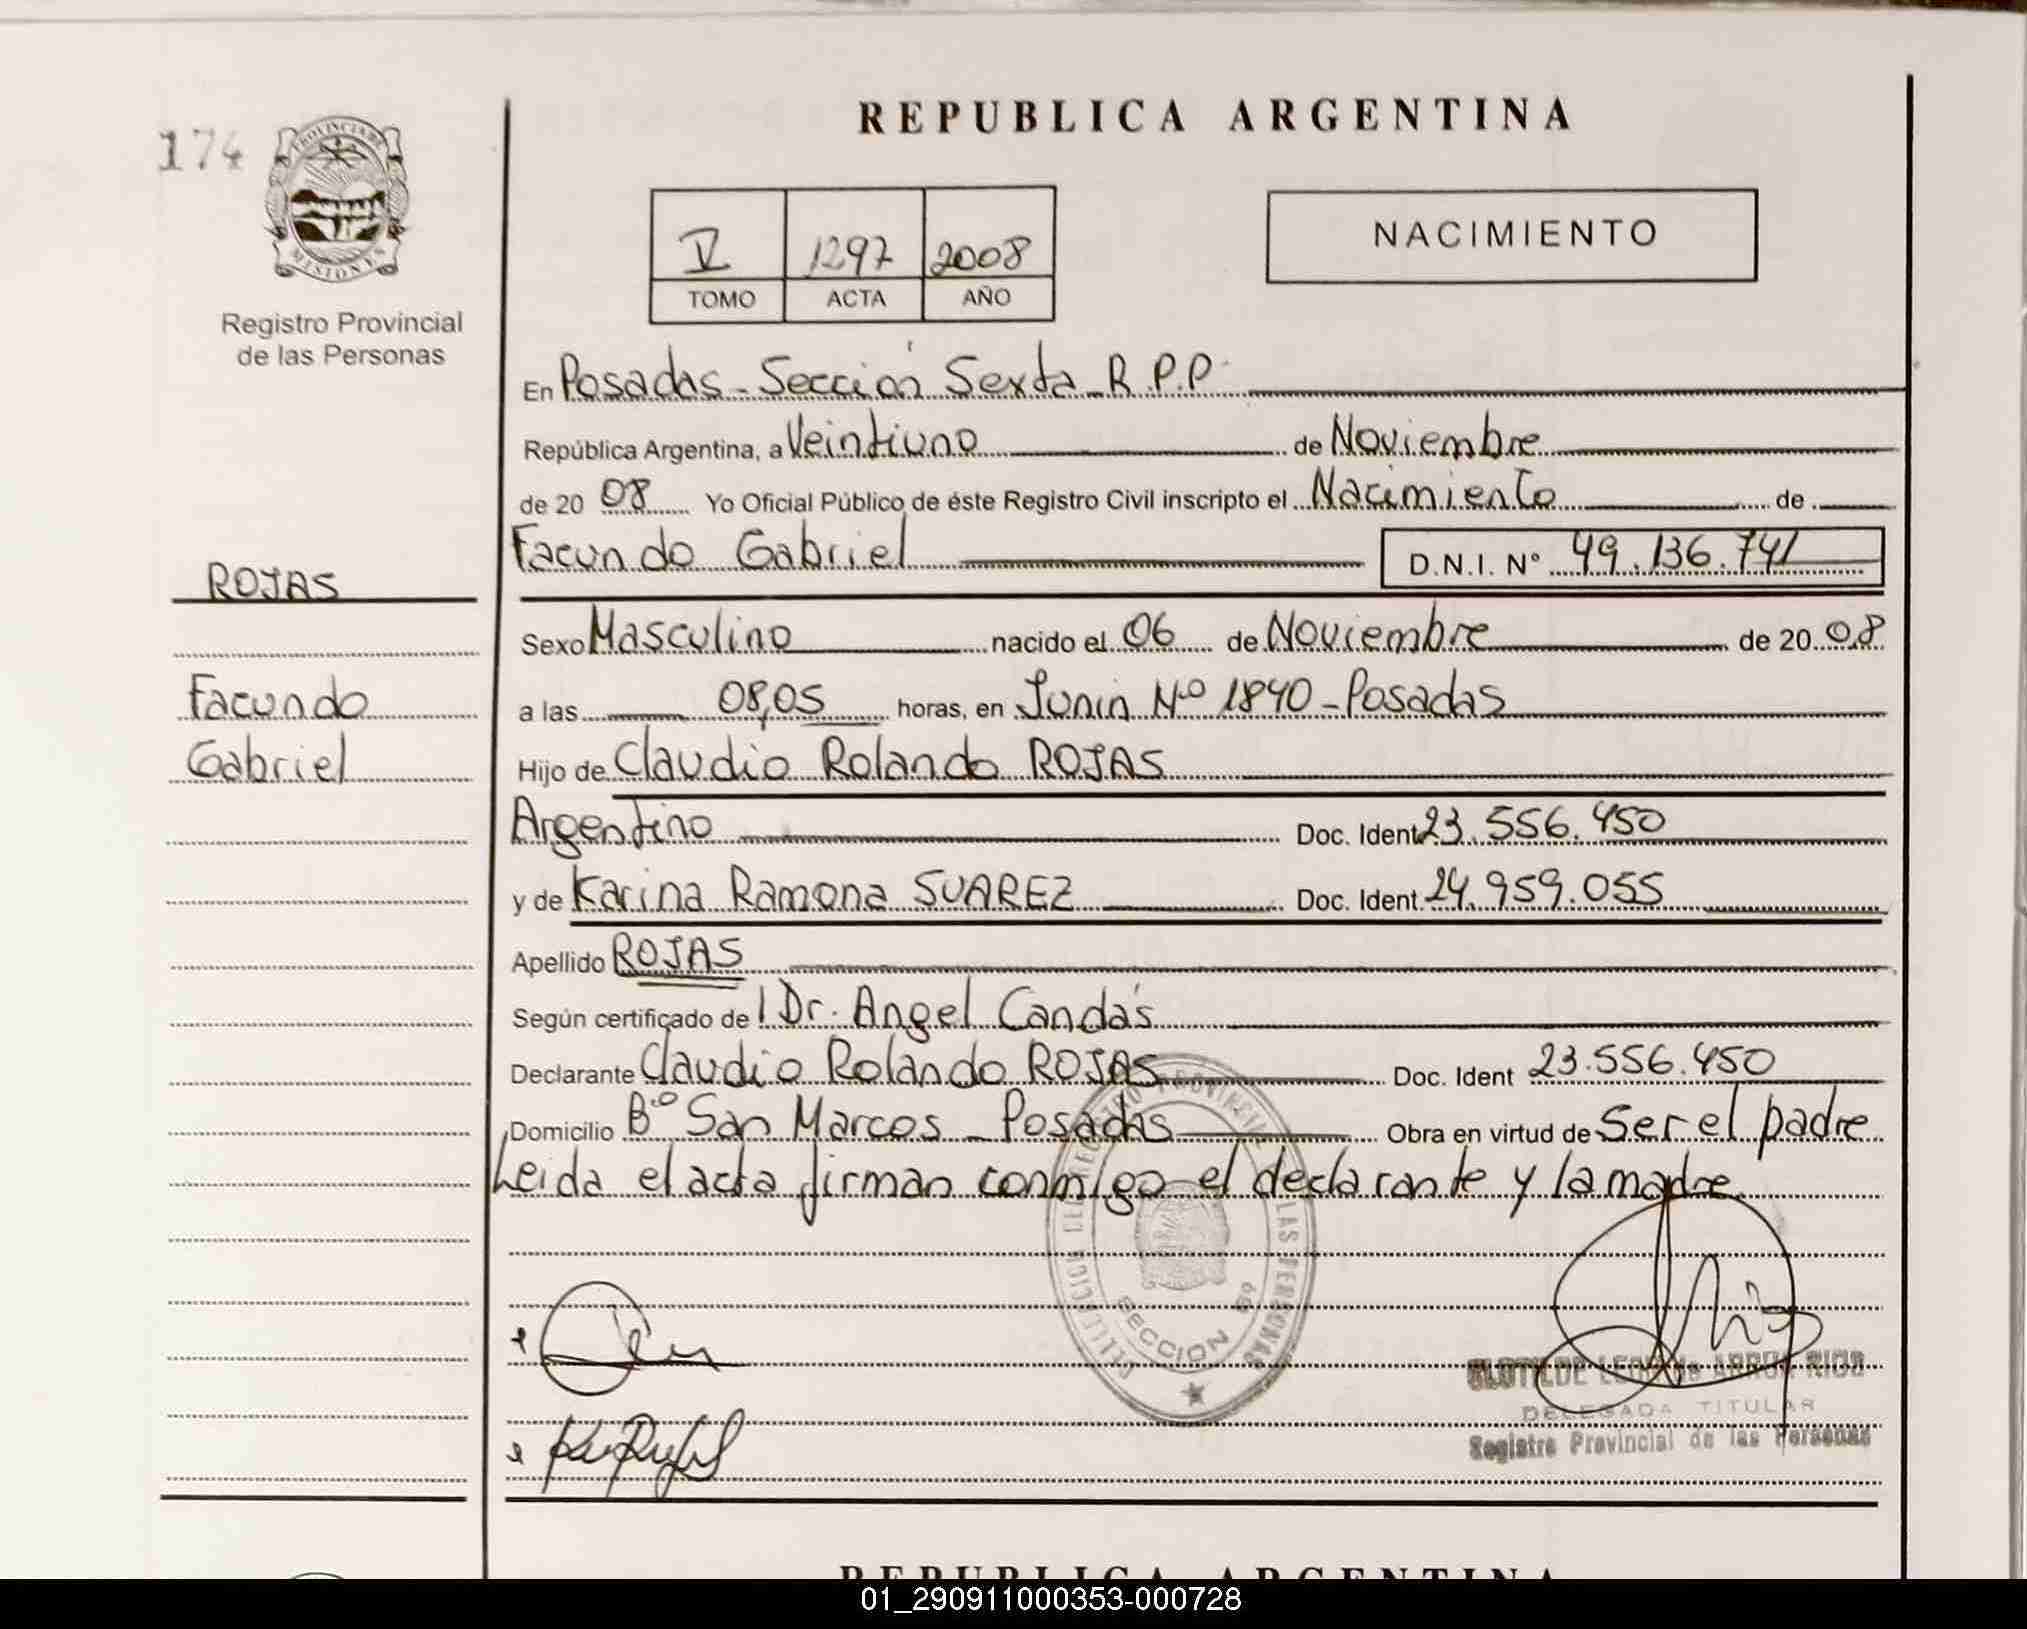 REPUBLICA ARGENTINA
174
PROVINCIA DE
MISIONES
Registro Provincial
de las Personas
V 1297 2008
TOMO ACTA AÑO
NACIMIENTO
En Posadas - Sección Sexta - R.P.P.
República Argentina, a Veintiuno de Noviembre
de 20 08 Yo Oficial Público de éste Registro Civil inscripto el Nacimiento de
Facundo Gabriel D.N.I. Nº 49.136.741
ROJAS
Facundo
Gabriel
Sexo Masculino nacido el 06 de Noviembre de 20 08
a las 08,05 horas, en Junin Nº 1840 - Posadas
Hijo de Claudio Rolando ROJAS
Argentino Doc. Ident. 23.556.450
y de Karina Ramona SUAREZ Doc. Ident. 24.959.055
Apellido ROJAS
Según certificado de l Dr. Angel Candás
Declarante Claudio Rolando ROJAS Doc. Ident 23.556.450
Domicilio Bº San Marcos - Posadas Obra en virtud de Ser el padre
Leida el acta firman conmigo el declarante y la madre.
REGISTRO PROVINCIAL LAS PERSONAS
SECCION 6º
DELEGADA TITULAR
Registro Provincial de las Personas
REPUBLICA ARGENTINA
01_290911000353-000728